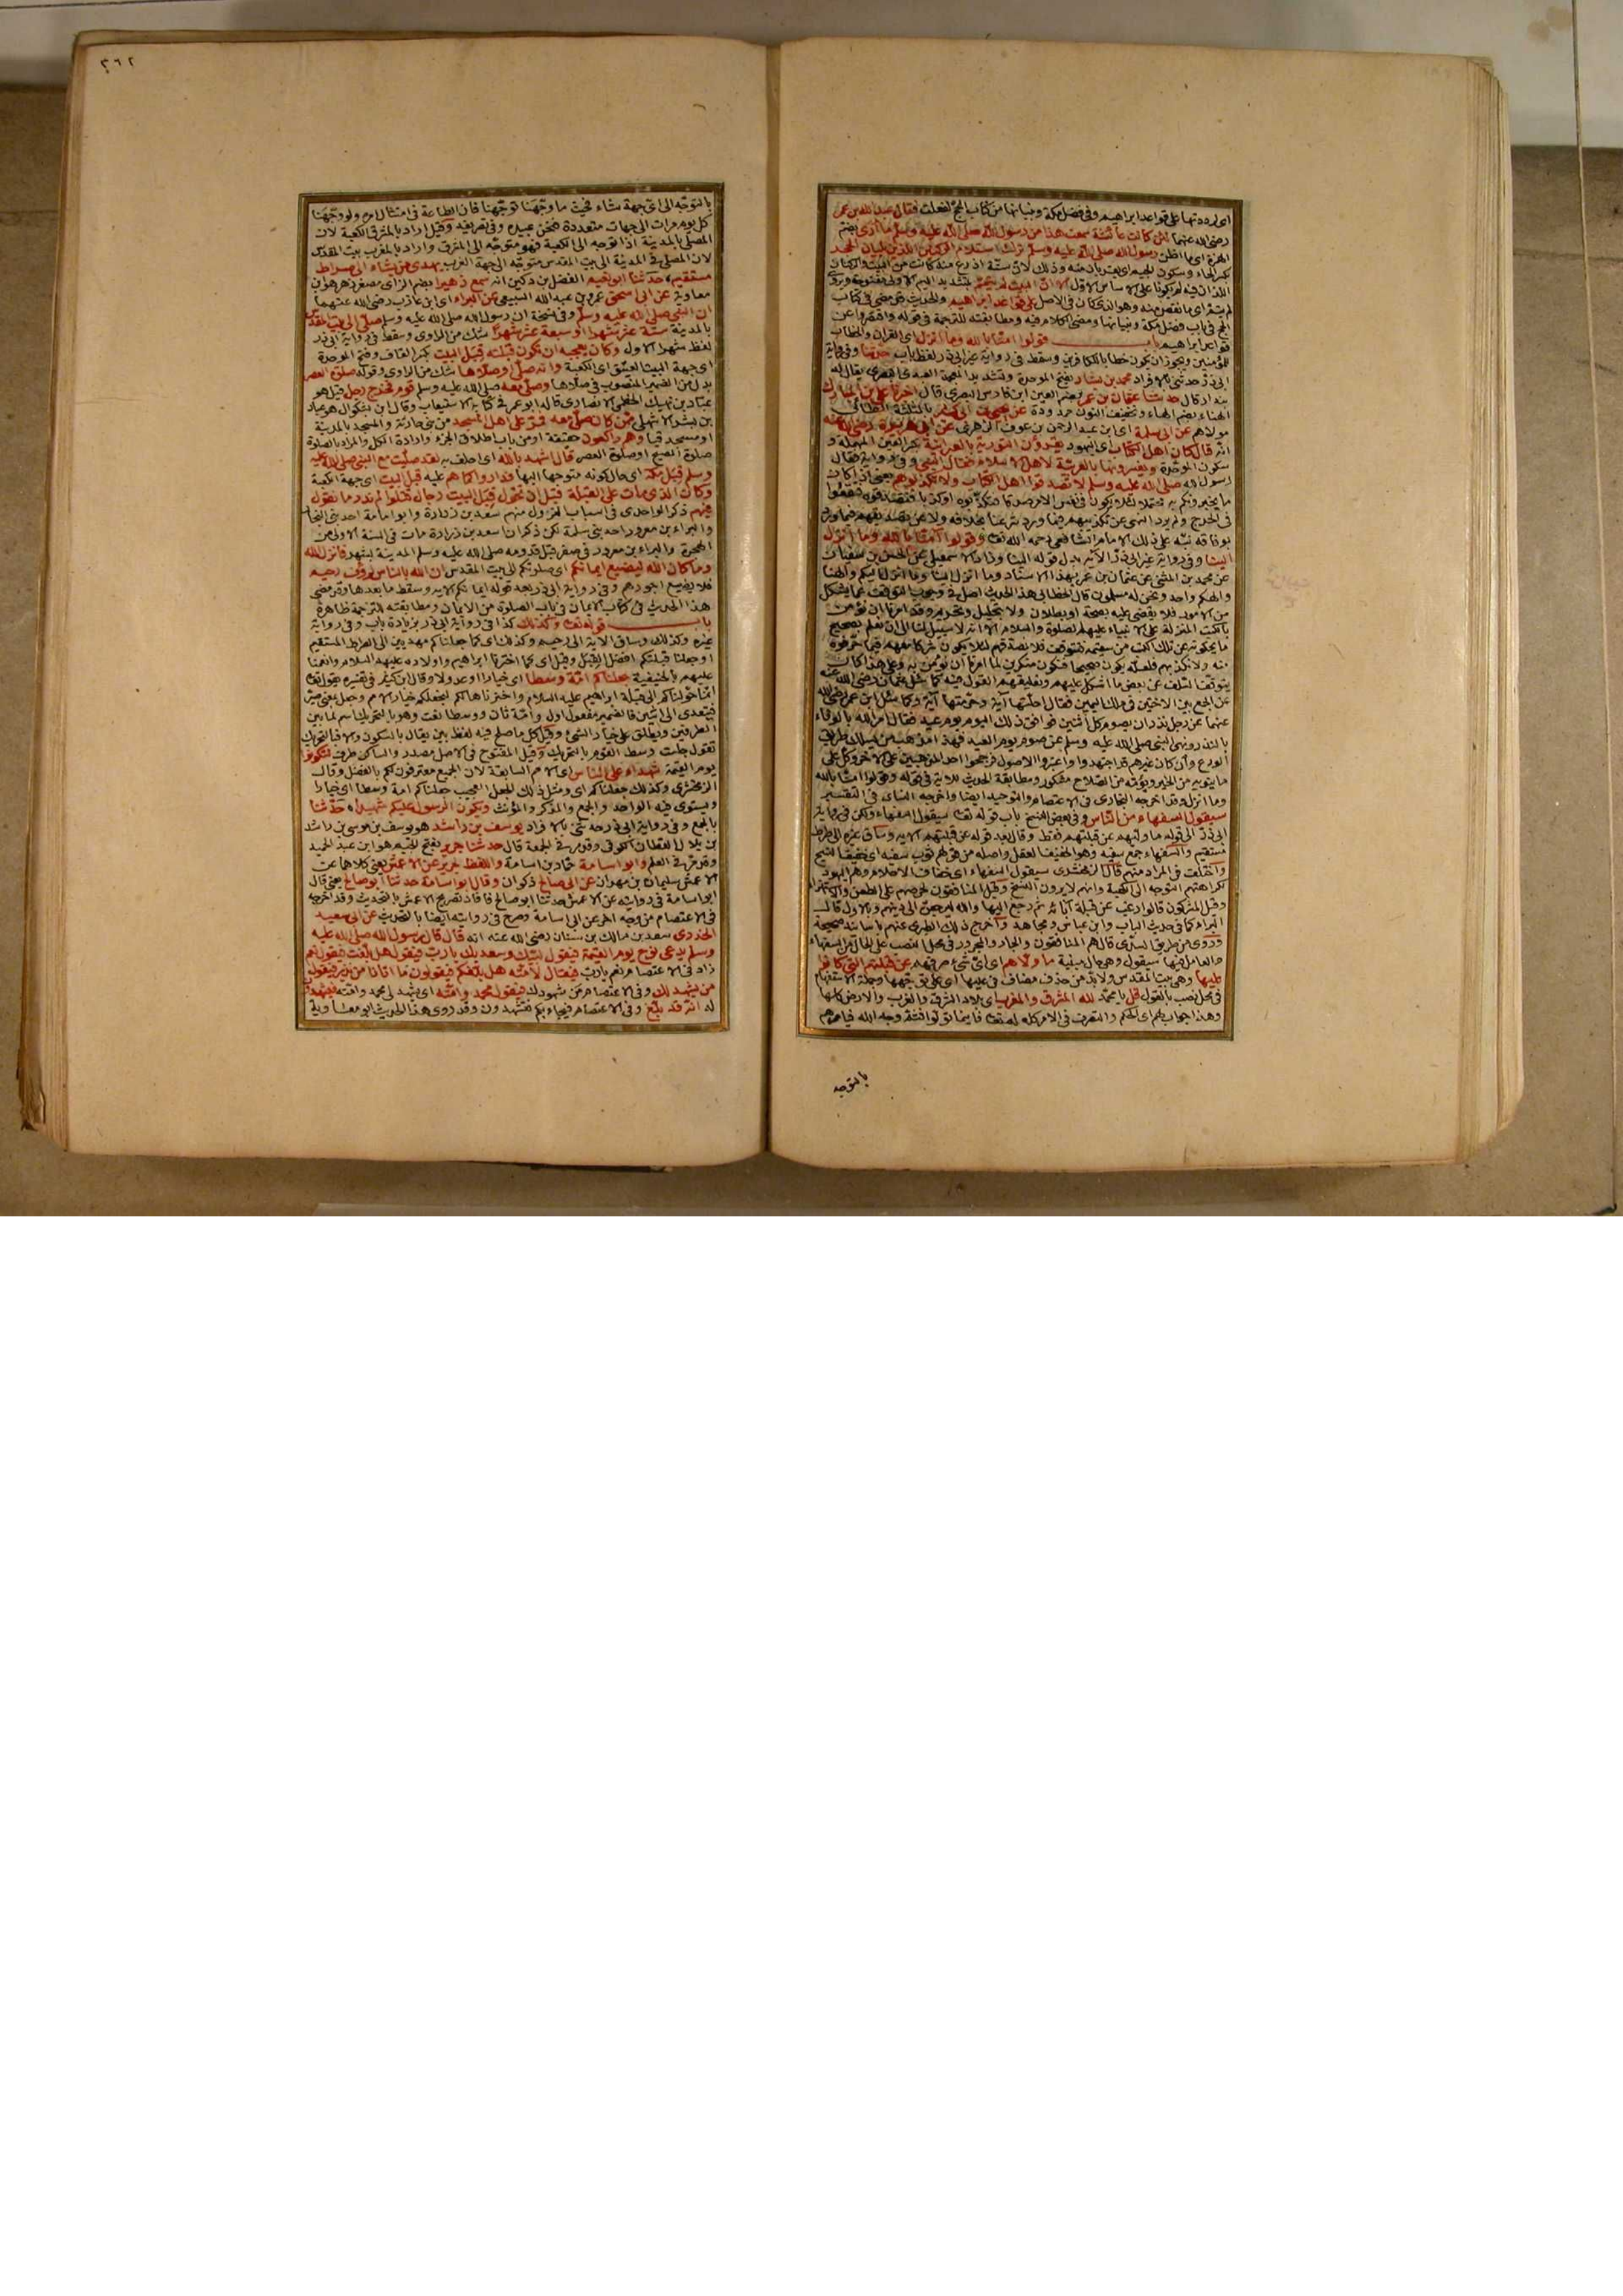 اى لرددتها على قواعد ابراهيم وفى فضل مكة وبنيانها من كتاب الحج لفعلت فقال عبد الله بن عمر
رضى الله عنهما لئن كانت عائشة سمعت هذا من رسول الله صلى الله عليه وسلم ما أرى بضم
الهمزة اى ما اظن رسول الله صلى الله عليه وسلم ترك استلام الركنين اللذين يليان الحجر
بكسر الحاء وسكون الجيم اى يقربان منه وذلك لان ستة اذرع منه كانت من البيت والركنان
اللذان فيه لم يكونا على الاساس الاول الا ان البيت لم يتمم بتشديد الميم الاولى مفتوحة
لم يتم اى ما نقص منه وهو الذى كان فى الاصل على قواعد ابراهيم والحديث قد مضى فى كتاب
الحج فى باب فضل مكة وبنيانها ومضى الكلام فيه ومطابقته للترجمة فى قوله واقتصروا عن
قواعد ابراهيم باب قولوا امنا بالله وما انزل اى القران والخطاب
للمؤمنين ويجوز ان يكون خطابا للكافرين وسقط فى رواية غير ابى ذر لفظ باب حدثنا وفى رواية
ابى ذر حدثنى بالافراد محمد بن بشار بفتح الموحدة وتشديد المعجمة العبدى البصرى يقال له
بندار قال حدثنا عثمان بن عمر بضم العين ابن فارس البصرى قال اخبرنا على بن المبارك
الهنائى بضم الهاء وتخفيف النون ممدودة عن يحيى بن ابى كثير بالمثلثة الطائى
مولاهم عن ابى سلمة اى ابن عبد الرحمن بن عوف الزهرى عن ابى هريرة رضى الله عنه
انه قال كان اهل الكتاب اى اليهود يقرؤن التورية بالعبرانية بكسر العين المهملة و
سكون الموحدة ويفسرونها بالعربية لاهل الاسلام فقال النبى وفى رواية فقال
رسول الله صلى الله عليه وسلم لا تصدقوا اهل الكتاب ولا تكذبوهم يعنى اذا كان
ما يخبرونكم به محتملا لئلا يكون فى نفس الامر صدقا فتكذبوه او كذبا فتصدقوه فتقعوا
فى الحرج ولم يرد النهى عن تكذيبهم فيما ورد شرعنا بخلافه ولا عن تصديقهم فيما ورد
بوفاقه نبه على ذلك الامام الشافعى رحمه الله تعالى وقولوا آمنا بالله وما انزل
الينا وفى رواية غير ابى ذر الآية بدل قوله الينا وزاد الاسمعيلى عن الحسن بن سفيان
عن محمد بن المثنى عن عثمان بن عمر بهذا الاسناد وما انزل الينا وما انزل اليكم والهنا
والهكم واحد ونحن له مسلمون قال الخطابى هذا الحديث اصل فى وجوب التوقف عما يشكل
من الامور فلا يقضى عليه بصحة او بطلان ولا بتحليل وتحريم وقد امرنا ان نؤمن
بالكتب المنزلة على الانبياء عليهم الصلوة والسلام الا انه لا سبيل لنا الى ان نعلم صحيح
ما يحكونه عن تلك الكتب من سقيمه فنتوقف فلا نصدقهم لئلا نكون شركاء معهم فيما حرفوه
منه ولا نكذبهم فلعله يكون صحيحا فنكون منكرين لما امرنا ان نؤمن به وعلى هذا كان
يتوقف السلف عن بعض ما اشكل عليهم وتعليقهم القول فيه كما سئل عثمان رضى الله عنه
عن الجمع بين الاختين فى ملك اليمين فقال احلتهما آية وحرمتهما آية وكما سئل ابن عمر رضى الله
عنهما عن رجل نذر ان يصوم كل اثنين فوافق ذلك اليوم يوم عيد فقال امر الله بالوفاء
بالنذر ونهى النبى صلى الله عليه وسلم عن صوم يوم العيد فهذا مذهب من يسلك طريق
الورع وان كان غيرهم قد اجتهدوا واعتبروا الاصول فرجحوا احد المذهبين على الاخر وكل على
ما ينويه من الخير ويؤمه من الصلاح مشكور ومطابقة الحديث للاية فى قوله وقولوا امنا بالله
وما انزل وقد اخرجه البخارى فى الاعتصام والتوحيد ايضا واخرجه النسائى فى التفسير
سيقول السفهاء من الناس وفى بعض النسخ باب قوله تعالى سيقول السفهاء ولكن فى رواية
ابى ذر الى قوله ما وليهم عن قبلتهم فقط وقال بعد قوله عن قبلتهم الآية وساق غيره الى صراط
مستقيم والسفهاء جمع سفيه وهو الخفيف العقل واصله من قولهم ثوب سفيه اى خفيف النسج
واختلف فى المراد منهم قال الزمخشرى سيقول السفهاء اى خفاف الاحلام وهم اليهود
لكراهتهم التوجه الى الكعبة وانهم لا يرون النسخ وقيل المنافقون لحرصهم على الطعن والاستهزاء
وقيل المشركون قالوا رغب عن قبلة آبائه ثم رجع اليها والله ليرجعن الى دينهم وبالاول قال
البراء كما فى حديث الباب وابن عباس ومجاهد وأخرج ذلك الطبرى عنهم باسانيد صحيحة
وروى من طريق السدى قال هم المنافقون والجار والمجرور فى محل النصب على الحال من السفهاء
والعامل فيها سيقول وهى حال مبينة ما ولاهم اى اى شئ صرفهم عن قبلتهم التى كانوا
عليها وهى بيت المقدس ولا بد من حذف مضاف فى عليها اى على توجهها وجملة الاستفهام
فى محل نصب بالقول قل يا محمد لله المشرق والمغرب اى بلاد الشرق والغرب والارض كلها
وهذا جواب لهم اى الحكم والتصرف فى الامر كله لله تعالى فاينما تولوا فثمة وجه الله فيأمرهم
بالتوجه
٢٦٢
بالتوجه الى اى جهة شاء فحيث ما وجهنا توجهنا فان الطاعة فى امتثال امره ولو وجهنا
كل يوم مرات الى جهات متعددة فنحن عبيده وفى تصريفه وقيل اراد بالمشرق الكعبة لان
المصلى بالمدينة اذا توجه الى الكعبة فهو متوجه الى المشرق واراد بالمغرب بيت المقدس
لان المصلى فى المدينة الى بيت المقدس متوجه الى جهة الغرب يهدى من يشاء الى صراط
مستقيم حدثنا ابو نعيم الفضل بن دكين انه سمع زهيرا بضم الزاى مصغر زهر هو ابن
معاوية عن ابى اسحق عمرو بن عبد الله السبيعى عن البراء اى ابن عازب رضى الله عنهما
ان النبى صلى الله عليه وسلم وفى نسخة ان رسول الله صلى الله عليه وسلم صلى الى بيت المقدس
بالمدينة ستة عشر شهرا او سبعة عشر شهرا شك من الراوى وسقط فى رواية ابى ذر
لفظ شهرا الاول وكان يعجبه ان تكون قبلته قبل البيت بكسر القاف وفتح الموحدة
اى جهة البيت العتيق اى الكعبة وانه صلى او صلاها شك من الراوى وقوله صلوة العصر
بدل من الضمير المنصوب فى صلاها وصلى معه صلى الله عليه وسلم قوم فخرج رجل قيل هو
عباد بن نهيك الخطمى الانصارى قاله ابو عمر فى كتابه الاستيعاب وقال ابن بشكوال هو عباد
بن بشر الاشهلى ممن كان صلى معه فمر على اهل المسجد من بنى حارثة والمسجد بالمدينة
او مسجد قبا وهم راكعون حقيقة او من باب اطلاق الجزء وارادة الكل والمراد بالصلوة
صلوة الصبح او صلوة العصر قال اشهد بالله اى احلف به لقد صليت مع النبى صلى الله عليه
وسلم قبل مكة اى حال كونه متوجها اليها فداروا كما هم عليه قبل البيت اى جهة الكعبة
وكان الذى مات على القبلة قبل ان تحول قبل البيت رجال قتلوا لم ندر ما نقول
فيهم ذكر الواحدى فى اسباب النزول منهم سعد بن زرارة وابو امامة احد بنى النجار
والبراء بن معرور احد بنى سلمة لكن ذكر ان اسعد بن زرارة مات فى السنة الاولى من
الهجرة والبراء بن معرور فى صفر قبل قدومه صلى الله عليه وسلم المدينة بشهر فانزل الله
وما كان الله ليضيع ايمانكم اى صلوتكم الى بيت المقدس ان الله بالناس لرؤف رحيم
فلا يضيع اجورهم وفى رواية ابى ذر بعد قوله ايمانكم الاية وسقط ما بعدها وقد مضى
هذا الحديث فى كتاب الايمان فى باب الصلوة من الايمان ومطابقته للترجمة ظاهرة
باب قوله تعالى وكذلك كذا فى رواية ابى ذر بزيادة باب وفى رواية
غيره وكذلك وساق الاية الى رحيم وكذلك اى كما جعلناكم مهديين الى الصراط المستقيم
او جعلنا قبلتكم افضل القبل وقيل اى كما اخترنا ابراهيم واولاده عليهم السلام وانعمنا
عليهم بالحنيفية جعلناكم امة وسطا اى خيارا او عدولا وقال ابن كثير فى تفسيره يقول تعالى
انما حولناكم الى قبلة ابراهيم عليه السلام واخترناها لكم لنجعلكم خيار الامم وجعل بمعنى صير
فيتعدى الى اثنين فالضمير مفعول اول وامة ثان ووسطا نعت وهو بالتحريك اسم لما بين
الطرفين ويطلق على خيار الشئ وقيل كل ما صلح فيه لفظ بين يقال بالسكون والا فبالتحريك
تقول جلست وسط القوم بالتحريك وقيل المفتوح فى الاصل مصدر والساكن ظرف لتكونوا
يوم القيمة شهداء على الناس اى الامم السابقة لان الجميع معترفون لكم بالفضل وقال
الزمخشرى وكذلك جعلناكم اى ومثل ذلك الجعل العجيب جعلناكم امة وسطا اى خيارا
ويستوى فيه الواحد والجمع والمذكر والمؤنث ويكون الرسول عليكم شهيدا حدثنا
بالجمع وفى رواية ابى ذر حدثنى بالافراد يوسف بن راشد هو يوسف بن موسى بن راشد
بن بلال القطان الكوفى وقد مر فى الجمعة قال حدثنا جرير بفتح الجيم هو ابن عبد الحميد
وقد مر فى العلم وابو اسامة حماد بن اسامة واللفظ لجرير عن الاعمش يعنى كلاهما عن
الاعمش سليمان بن مهران عن ابى صالح ذكوان وقال ابو اسامة حدثنا ابو صالح يعنى قال
ابو اسامة فى روايته عن الاعمش حدثنا ابو صالح فافاد تصريح الاعمش بالتحديث وقد اخرجه
فى الاعتصام من وجه اخر عن ابى اسامة وصرح فى روايته ايضا بالتحديث عن ابى سعيد
الخدرى سعد بن مالك بن سنان رضى الله عنه انه قال قال رسول الله صلى الله عليه
وسلم يدعى نوح يوم القيمة فيقول لبيك وسعديك يا رب فيقول هل بلغت فيقول نعم
زاد فى الاعتصام نعم يا رب فيقال لامته هل بلغكم فيقولون ما اتانا من نذير فيقول
من يشهد لك وفى الاعتصام من شهودك فيقول محمد وامته اى يشهد لى محمد وامته فيشهدون
له انه قد بلغ وفى الاعتصام فيجاء بكم فتشهدون وقد روى هذا الحديث ابو معاوية